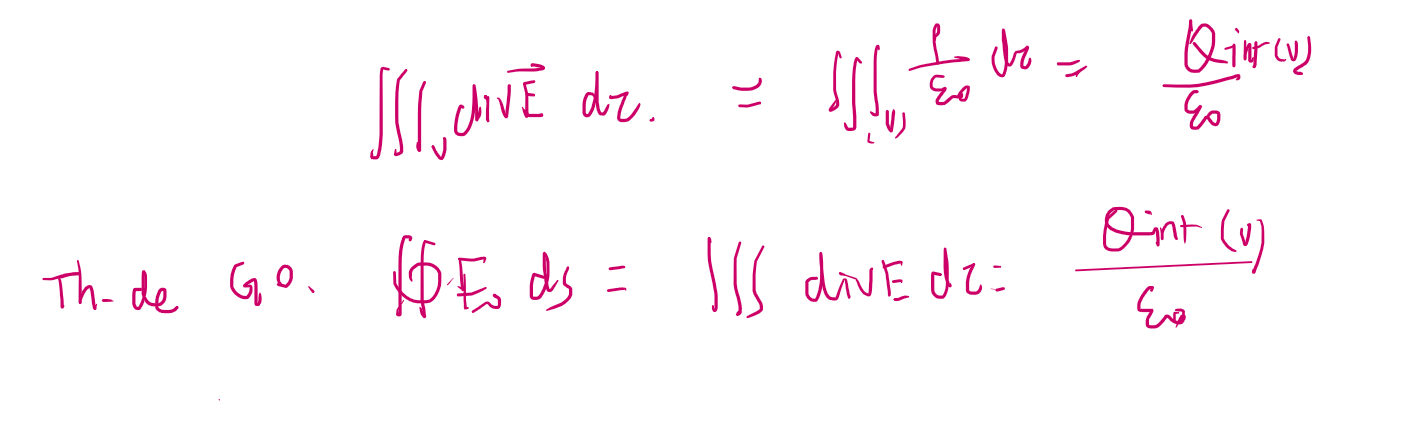 ∭_V div E⃗ dτ. = ∭_(V) ρ/ε₀ dτ = Qint(V)/ε₀
Th- de GO. ∯ E. ds = ∭ divE dτ = Qint (V)/ε₀